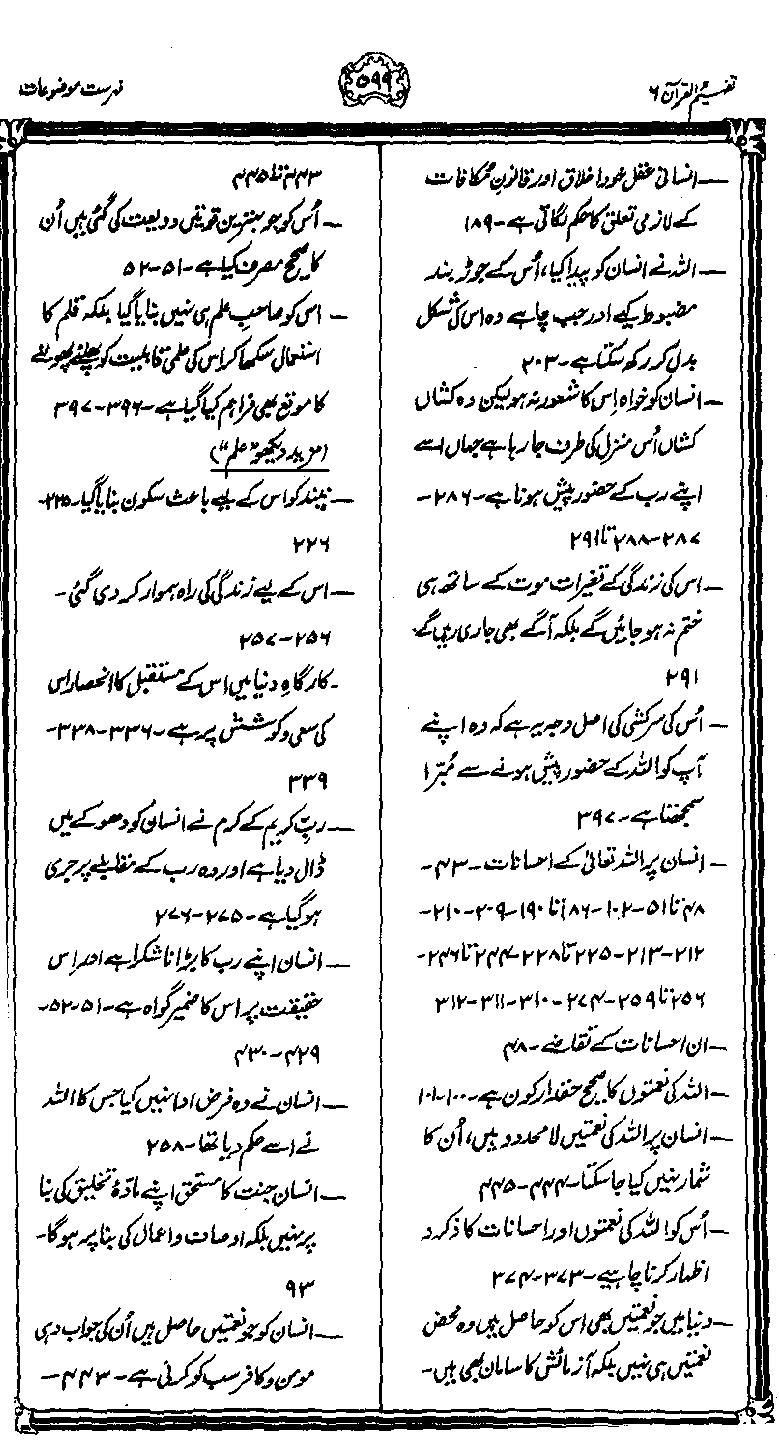 تفہیم القرآن ۶
۵۹۹
فہرست موضوعات
— انسانی عقل خود اخلاق اور قانونِ مکافات
کے لازمی تعلق کا حکم لگاتی ہے۔ ۱۸۹
— اللہ نے انسان کو پیدا کیا، اُس کے جوڑ بند
مضبوط کیے اور جب چاہے وہ اس کی شکل
بدل کر رکھ سکتا ہے۔ ۲۰۳
— انسان کو خواہ اِس کا شعور نہ ہو لیکن وہ کشاں
کشاں اُس منزل کی طرف جا رہا ہے جہاں اسے
اپنے رب کے حضور پیش ہونا ہے۔ ۲۸۶-
۲۸۷-۲۸۸ تا ۲۹۱
— اس کی زندگی کے تغیرات موت کے ساتھ ہی
ختم نہ ہو جائیں گے بلکہ آگے بھی جاری رہیں گے۔
۲۹۱
— اُس کی سرکشی کی اصل وجہ یہ ہے کہ وہ اپنے
آپ کو اللہ کے حضور پیش ہونے سے مُبرّا
سمجھتا ہے۔ ۳۹۷
— انسان پر اللہ تعالیٰ کے احسانات۔ ۴۳-
۴۸ تا ۵۱-۱۰۲-۱۸۶ تا ۱۹۰-۲۰۹-۲۱۰-
۲۱۲-۲۱۳-۲۲۵ تا ۲۲۸-۲۴۴ تا ۲۴۶-
۲۵۶ تا ۲۵۹-۲۷۴-۳۱۰-۳۱۱-۳۱۲
— ان احسانات کے تقاضے۔ ۴۸
— اللہ کی نعمتوں کا صحیح حقدار کون ہے۔ ۱۰۰-۱۰۱
— انسان پر اللہ کی نعمتیں لا محدود ہیں، اُن کا
شمار نہیں کیا جا سکتا۔ ۴۴۴-۴۴۵
— اُس کو اللہ کی نعمتوں اور احسانات کا ذکر و
اظہار کرنا چاہیے۔ ۳۷۳-۳۷۴
— دنیا میں جو نعمتیں بھی اس کو حاصل ہیں وہ محض
نعمتیں ہی نہیں بلکہ آزمائش کا سامان بھی ہیں۔
۴۴۳ تا ۴۴۵
— اُس کو جو بہترین قوتیں ودیعت کی گئی ہیں اُن
کا صحیح مصرف کیا ہے۔ ۵۱-۵۲
— اس کو صاحبِ علم ہی نہیں بنایا گیا بلکہ قلم کا
استعمال سکھا کر اس کی علمی قابلیت کو پھلنے پھولنے
کا موقع بھی فراہم کیا گیا ہے۔ ۳۹۶-۳۹۷
(مزید دیکھو ”علم“)
— نیند کو اس کے لیے باعث سکون بنایا گیا۔ ۲۲۵-
۲۲۶
— اس کے لیے زندگی کی راہ ہموار کر دی گئی۔
۲۵۶-۲۵۷
- کارگاہِ دنیا میں اس کے مستقبل کا انحصار اس
کی سعی و کوشش پر ہے۔ ۳۳۶-۳۳۸-
۳۳۹
— ربّ کریم کے کرم نے انسان کو دھوکے میں
ڈال دیا ہے اور وہ رب کے مقابلے پر جری
ہو گیا ہے۔ ۲۷۵-۲۷۶
— انسان اپنے رب کا بڑا ناشکرا ہے اور اِس
حقیقت پر اس کا ضمیر گواہ ہے۔ ۵۱-۵۲-
۴۲۹-۴۳۰
— انسان نے وہ فرض ادا نہیں کیا جس کا اللہ
نے اسے حکم دیا تھا۔ ۲۵۸
— انسان جنت کا مستحق اپنے مادۂ تخلیق کی بنا
پر نہیں بلکہ اوصاف و اعمال کی بنا پر ہوگا۔
۹۳
— انسان کو جو نعمتیں حاصل ہیں اُن کی جواب دہی
مومن و کافر سب کو کرنی ہے۔ ۴۴۳-